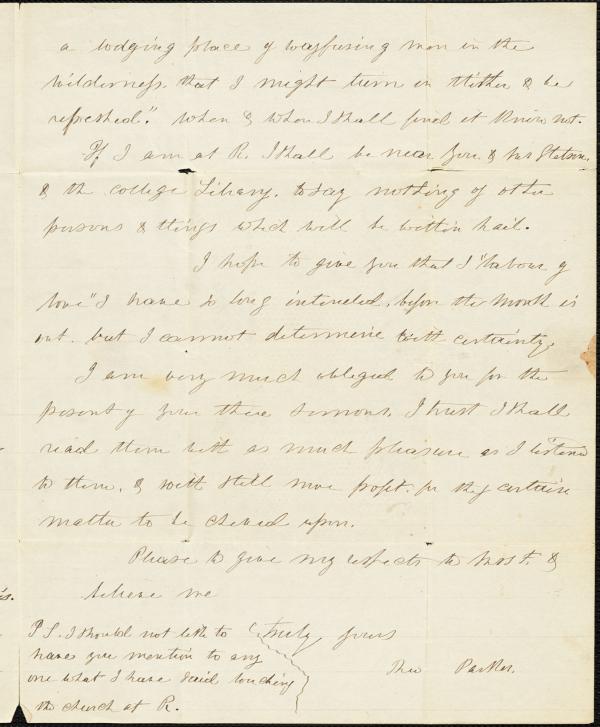 a lodging place of wayfaring men in the
wilderness that I might turn in thither & be
refreshed." When & where I shall find it I know not.
If I am at R. I shall be near you & Mr Stetson,
& the college Library. to say nothing of other
persons & things which will be within hail.
I hope to give you that "labour of
love" I have so long intended, before the month is
out. but I cannot determine with certainty.
I am very much obliged to you for the
present of your three sermons. I trust I shall
read them with as much pleasure as I listened
to them. & with still more profit. for they contain
matter to be chewed upon.
Please to give my respects to Mrs F. &
believe me
truly yours
Theo Parker.
P S. I should not like to
have you mention to any
one what I have said touching
the church at R.
s.